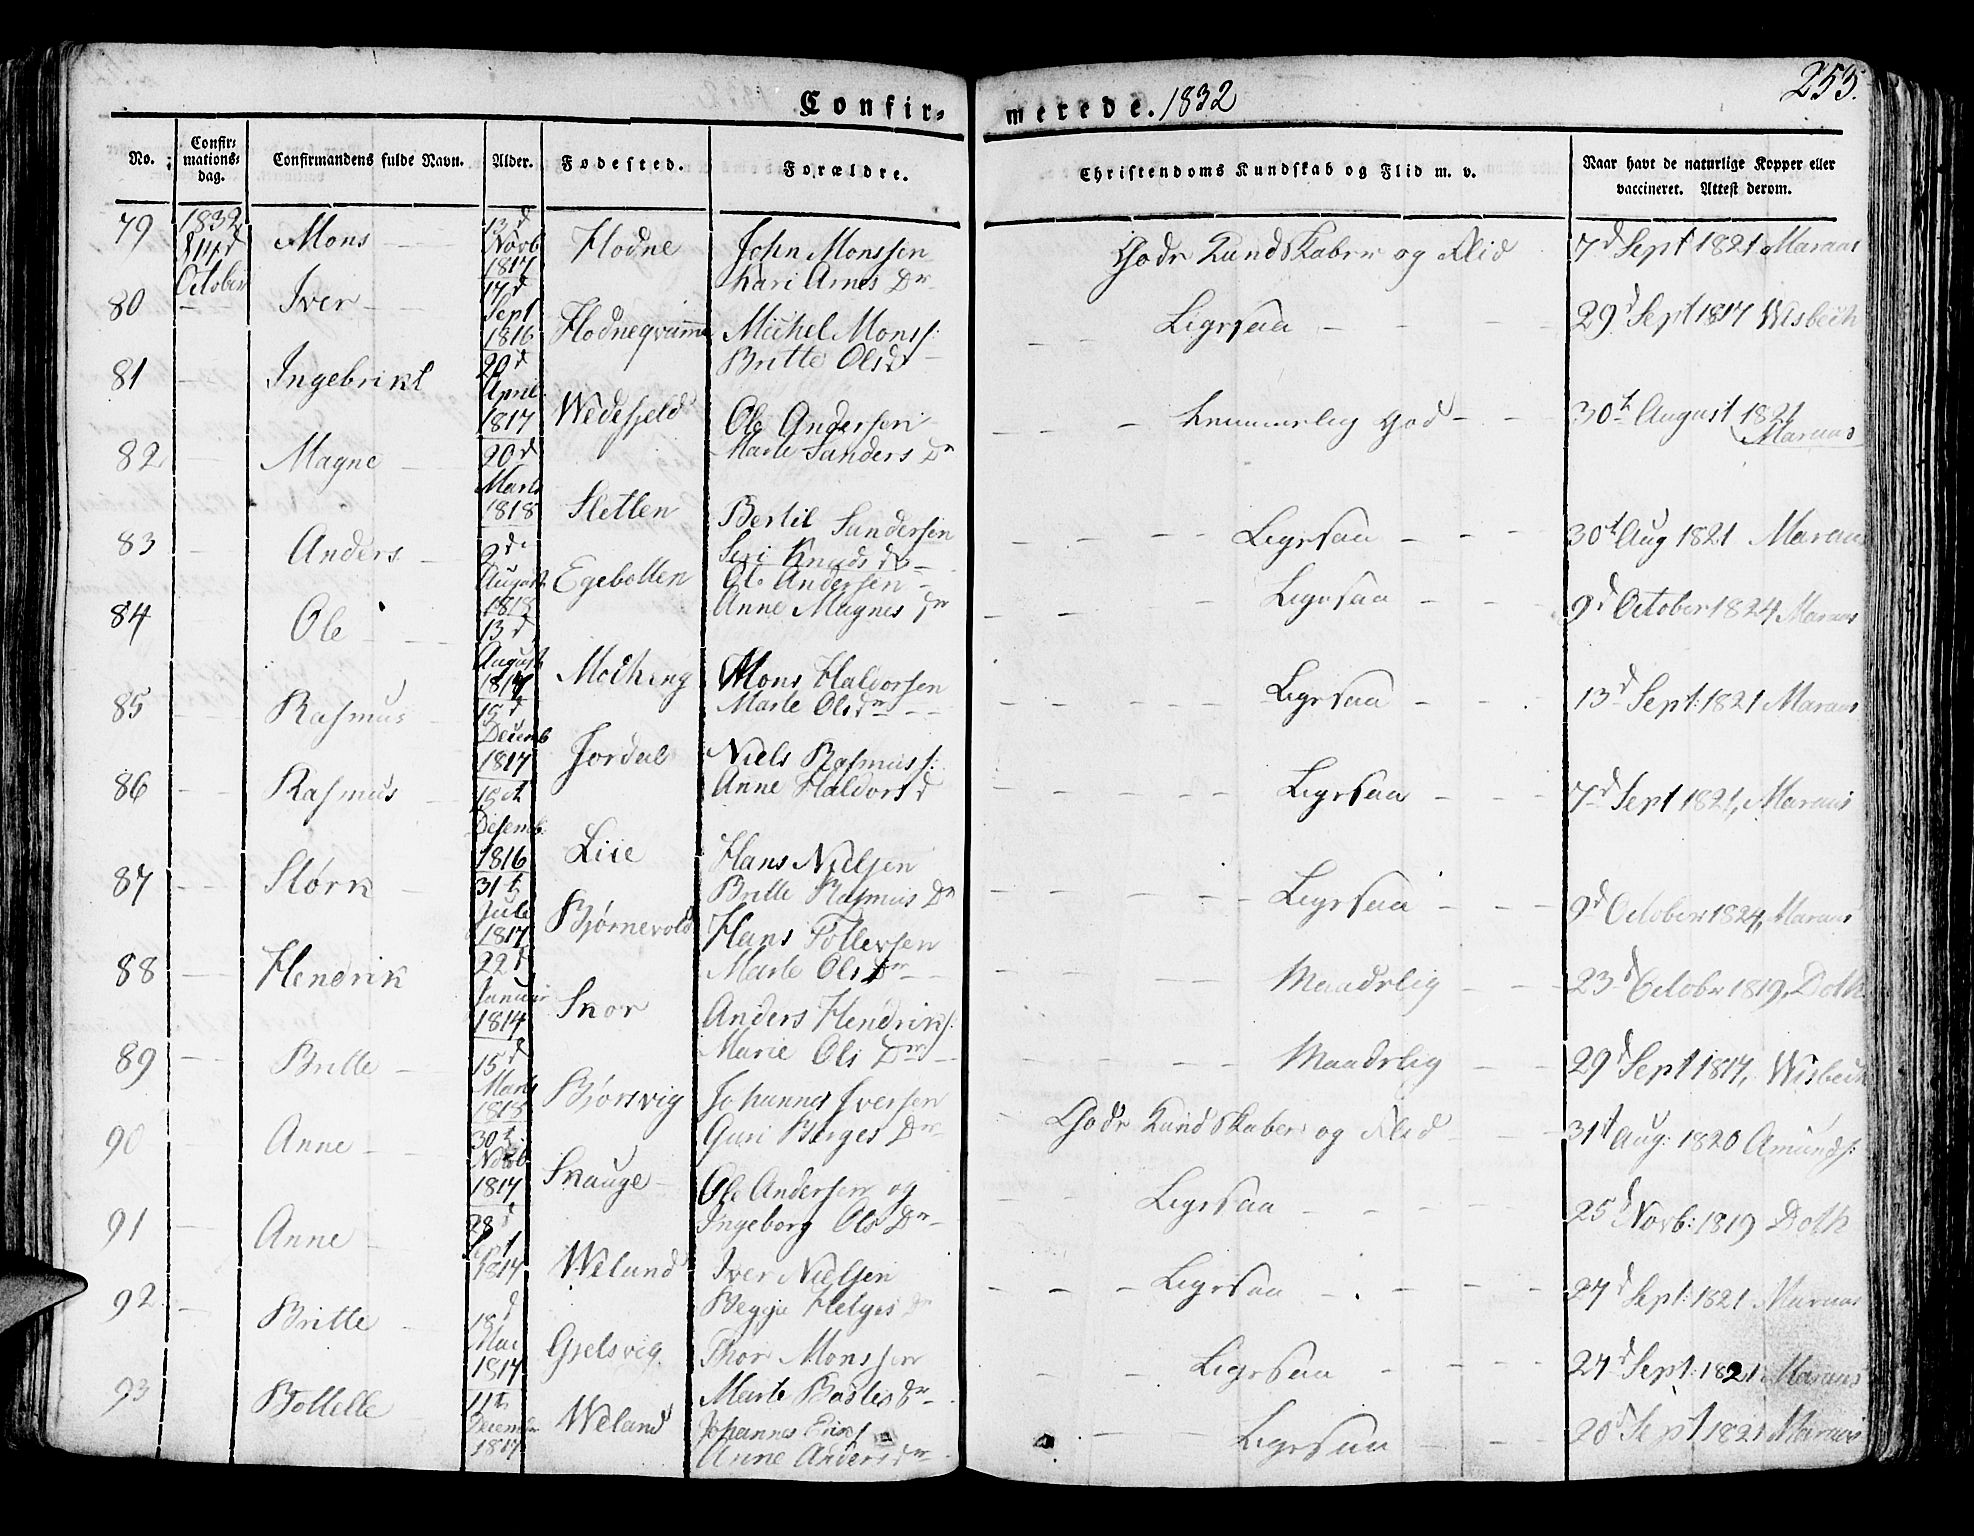 Confir-merede. 1832
253.
No. Confirmations-dag. Confirmandens fulde Navn. Alder. Fødested. Forældre. Christendoms Kundskab og Flid m. v. Naar havt de naturlige Kopper eller vaccineret. Attest derom.
79 1832 October Mons 13d Novb 1817 Flodne John Monssen Kari Arnes Dr Gode Kundskaber og Flid 7d Sept 1821 Maraas
80 Iver 17d Sept 1816 Flodneqvamme Michel Monss: Britte Olsd Ligesaa 29d Sept 1817 Wisbech
81 Ingebrikt 20d April 1817 Wedefjeld Ole Andersen Marte Sanders Dr temmerlig God 30te August 1821 Maraas
82 Magne 20d Marts 1818 Sletten Bertil Sandersen Siri Knuds dr Ligesaa 30t Aug 1821 Maraas
83 Anders 2d August 1818 Egebotten Ole Andersen Anne Magnes Dr Ligesaa 9d October 1824 Maraas
84 Ole 13d August 1817 Mons Haldorsen Marte Olsdr Ligesaa 13d Sept: 1821 Maraas
85 Rasmus 15d Decemb 1817 Jordal Niels Rasmuss: Anne Haldorsd Ligesaa 7d Sept 1821, Maraas
86 Rasmus 15d Desemb: 1816 Liie Hans Nielsen Britte Rasmus Dr Ligesaa 9d October 1824, Maraas
87 Størk 31t Juli 1817 Bjørnevold Hans Tollevsen Marte Ols Dr Maadelig 23d Octobr 1819, Doth
88 Hendrik 22d Januar 1814 Skor Anders Hendriks: Marie Ols Dr Maadelig 29d Sept 1817, Wisbech
89 Britte 15d Marts 1818 Bjørsvig Johannes Iversen Guri Børges Dr Gode Kundskaber og Flid 31t Aug: 1820 Amunds:
90 Anne 30t Novb 1817 Skauge Ole Andersen og Ingeborg Ols Dr Ligesaa 25d Novb: 1819 Doth
91 Anne 28d Sept 1817 Weland Iver Nielsen Helges Dr Ligesaa 27d Sept: 1821 Maraas
92 Britte 18d Mai 1817 Gjelsvig Thor Monssen Marte Dr Ligesaa 27d Sept: 1821 Maraas
93 Bottelle 11te Decembr 1817 Weland Johannes Anne Andersdr Ligesaa 20d Sept 1821 Maraas